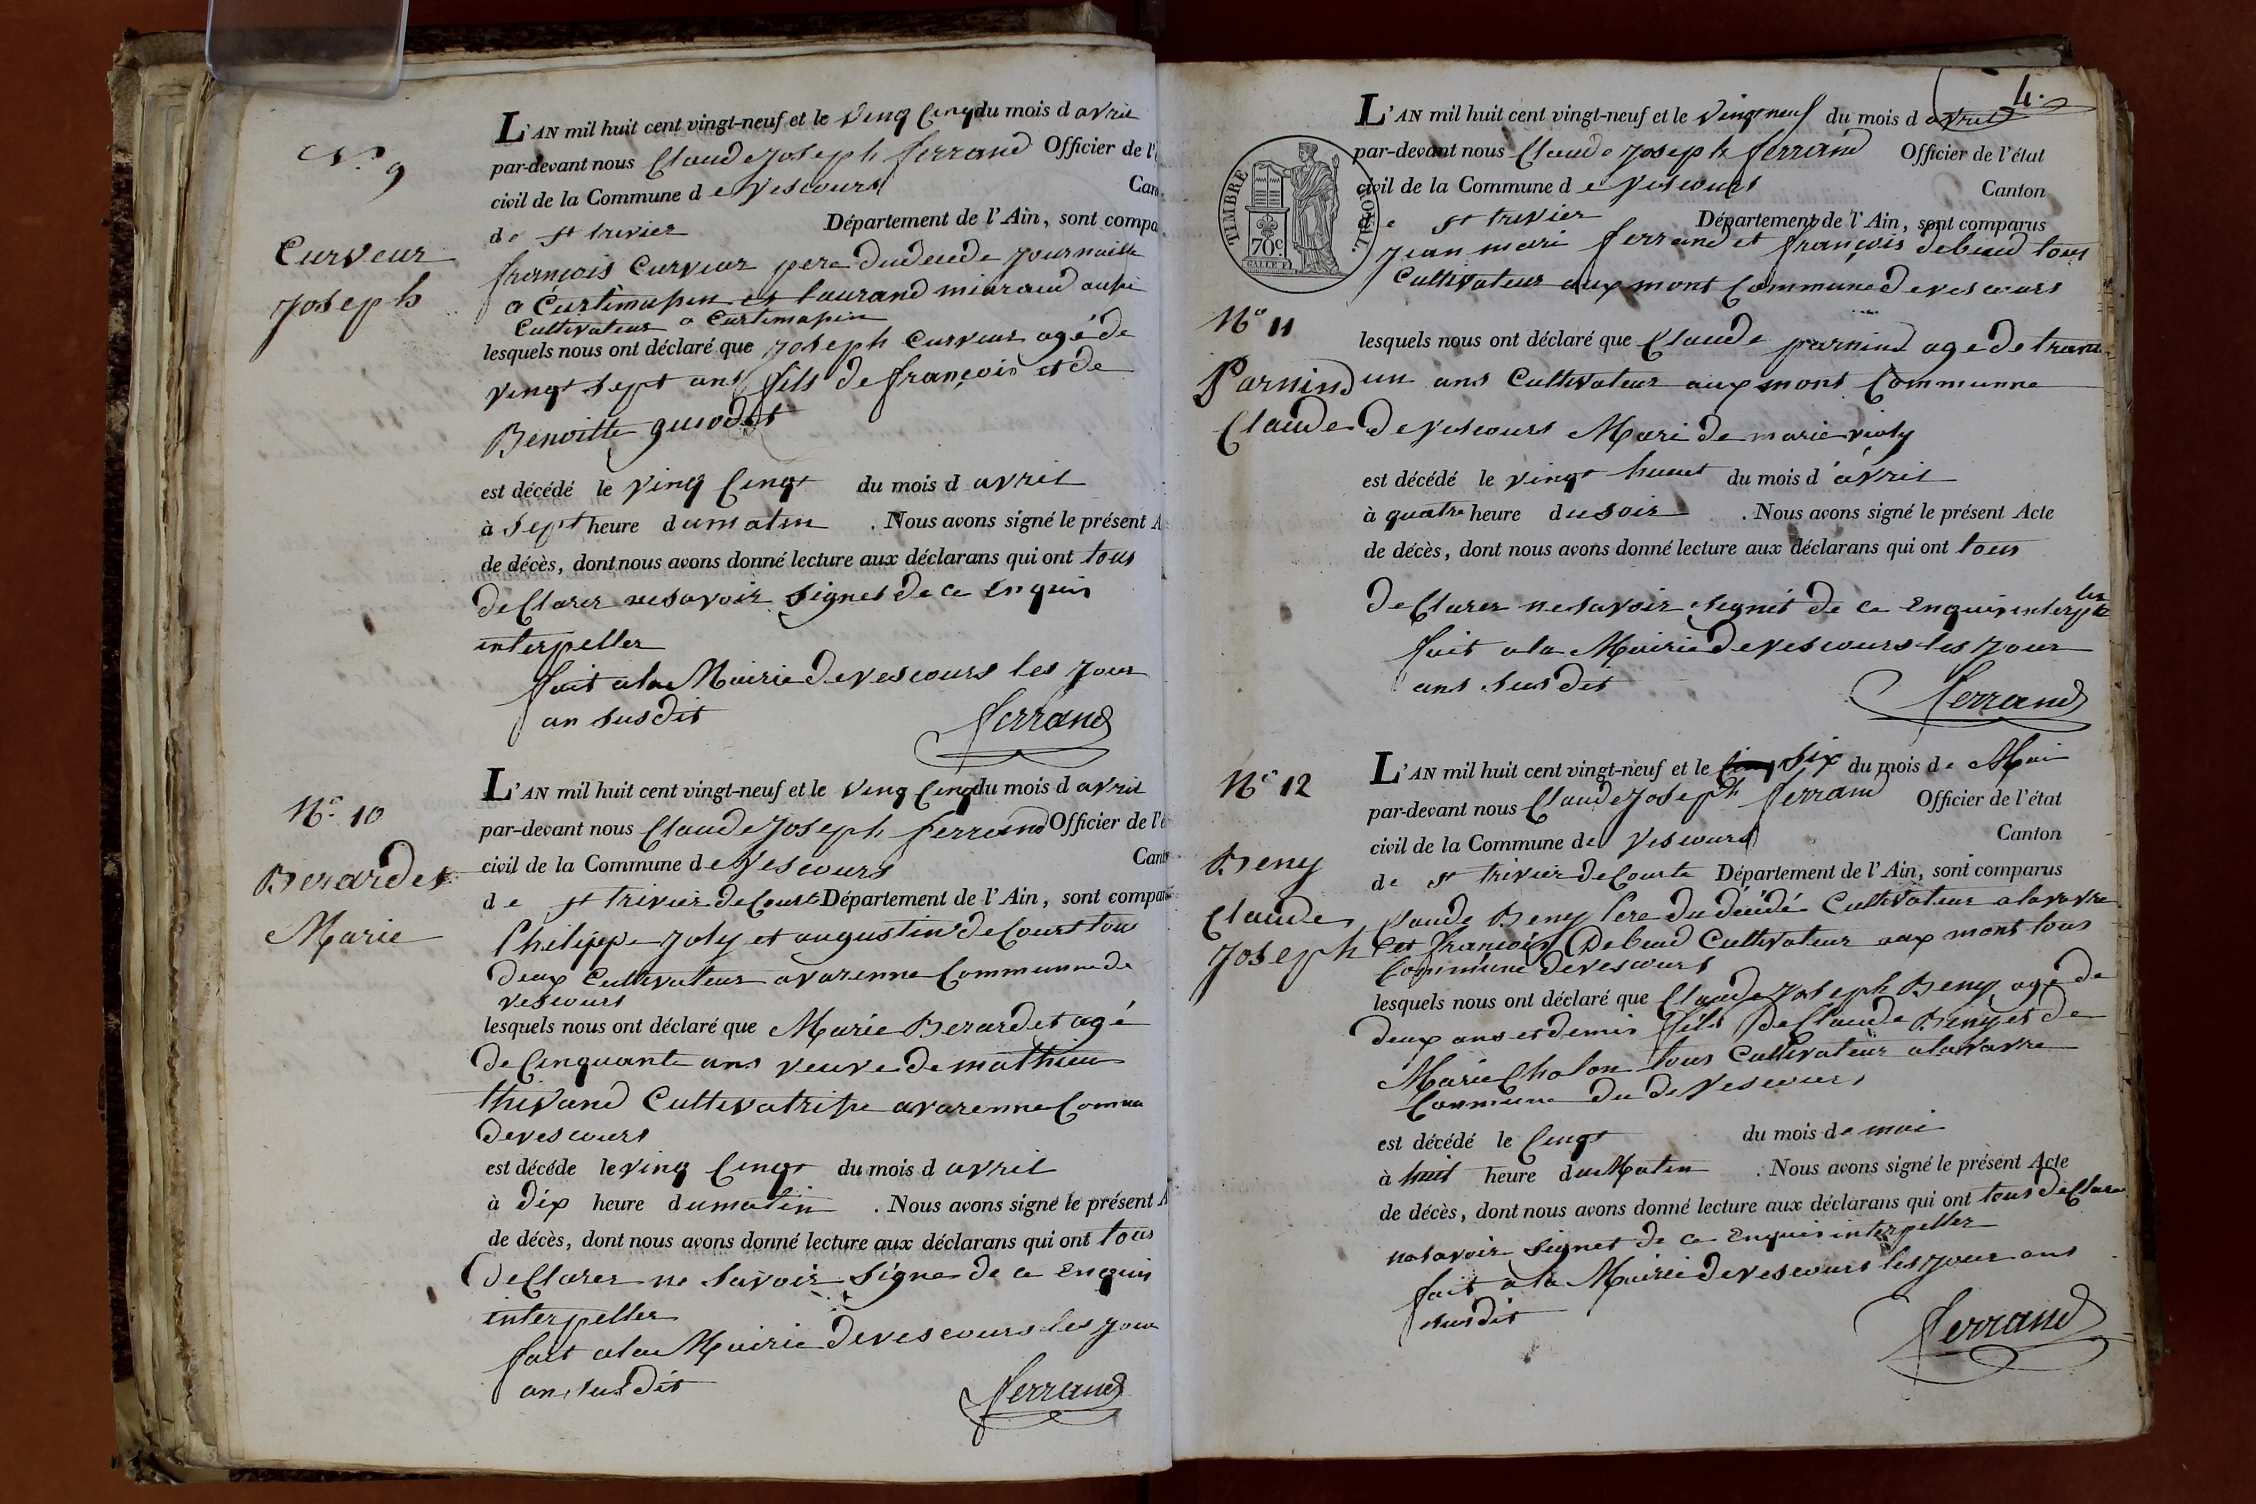 N.° 9
Curveur
Joseph
L'AN mil huit cent vingt-neuf et le ving Cinq du mois d avril
par-devant nous Claude Joseph ferrand Officier de l'é
civil de la Commune d e Vescours Can
de st trivier Département de l'Ain, sont compa
françois Curveur pere du decede journaille
a Curtimapin et laurand miaraud aussi
Cultivateur a Curtimapin
lesquels nous ont déclaré que joseph Curveur agé de
vingt sept ans fils de françois et de
Benoitte
est décédé le ving Cinqt du mois d avril
à sept heure dumatin . Nous avons signé le présent A
de décès, dont nous avons donné lecture aux déclarans qui ont tous
deClarer nesavoir signet de ce Enquis
interpeller
fait ala Mairie devescours les jour
an susdit
ferrand
N.° 10
Berardet
Marie
L'AN mil huit cent vingt-neuf et le Ving Cinq du mois d avril
par-devant nous Claude Joseph ferrand Officier de l'é
civil de la Commune d e Vescours Cant
d e st trivier deCourt Département de l'Ain, sont compar
Philippe Joly et augustin deCourt tou
deux Cultivateur avarenne Communne de
vescours
lesquels nous ont déclaré que Marie Berardet agé
de Cinquante ans veuve de mathieu
thevand Cultivatrise avarenne Commu
devescours
est décéde le ving Cinqt du mois d avril
à dix heure dumatin . Nous avons signé le présent A
de décès, dont nous avons donné lecture aux déclarans qui ont tous
deClarer ne savoir signe de ce Enquis
interpeller
fait alau Mairie devescours les jour
an susdit
ferrand
4.
TIMBRE ROYAL
70c.
L'AN mil huit cent vingt-neuf et le Vingt neuf du mois d avril
par-devant nous Claude Joseph ferrand Officier de l'état
civil de la Commune d e Vescours Canton
de st trivier Département de l'Ain, sont comparus
Jean mari ferrand et françois debeud tous
Cultivateur aux mont Communed evescours
N° 11
Parnind
Claude
lesquels nous ont déclaré que Claude parnind age de trante
un ans Cultivateur aux mont Communne
devescours Mari de marie violy
est décédé le vingt hueut du mois d'avril
à quatre heure dusoir . Nous avons signé le présent Acte
de décès, dont nous avons donné lecture aux déclarans qui ont tous
deClarer nesavoir signet de ce Enquis interpeller
fait ala Mairie devescours les jour
ans susdit
ferrand
N° 12
Beny
Claude
Joseph
L'AN mil huit cent vingt-neuf et le Cinq Six du mois de Mai
par-devant nous Claude Joseph ferrand Officier de l'état
civil de la Commune de Vescours Canton
de st trivier deCourte Département de l'Ain, sont comparus
Claude Beny Pere du décédé Cultivateur alavavre
et françois Debeud Cultivateur aux mont tous
Commune devescours
lesquels nous ont déclaré que Claude Joseph Beny age de
deux ans et demis fils de Claude Beny et de
Marie Cholon tous Cultivateur alavavre
Commune du de Vescours
est décédé le Cinqt du mois de mai
à huit heure du Matin . Nous avons signé le présent Acte
de décès, dont nous avons donné lecture aux déclarans qui ont tous deClare
nesavoir signet de ce Enquis interpeller
fait ala Mairie devescours les jour ans
susdit
ferrand